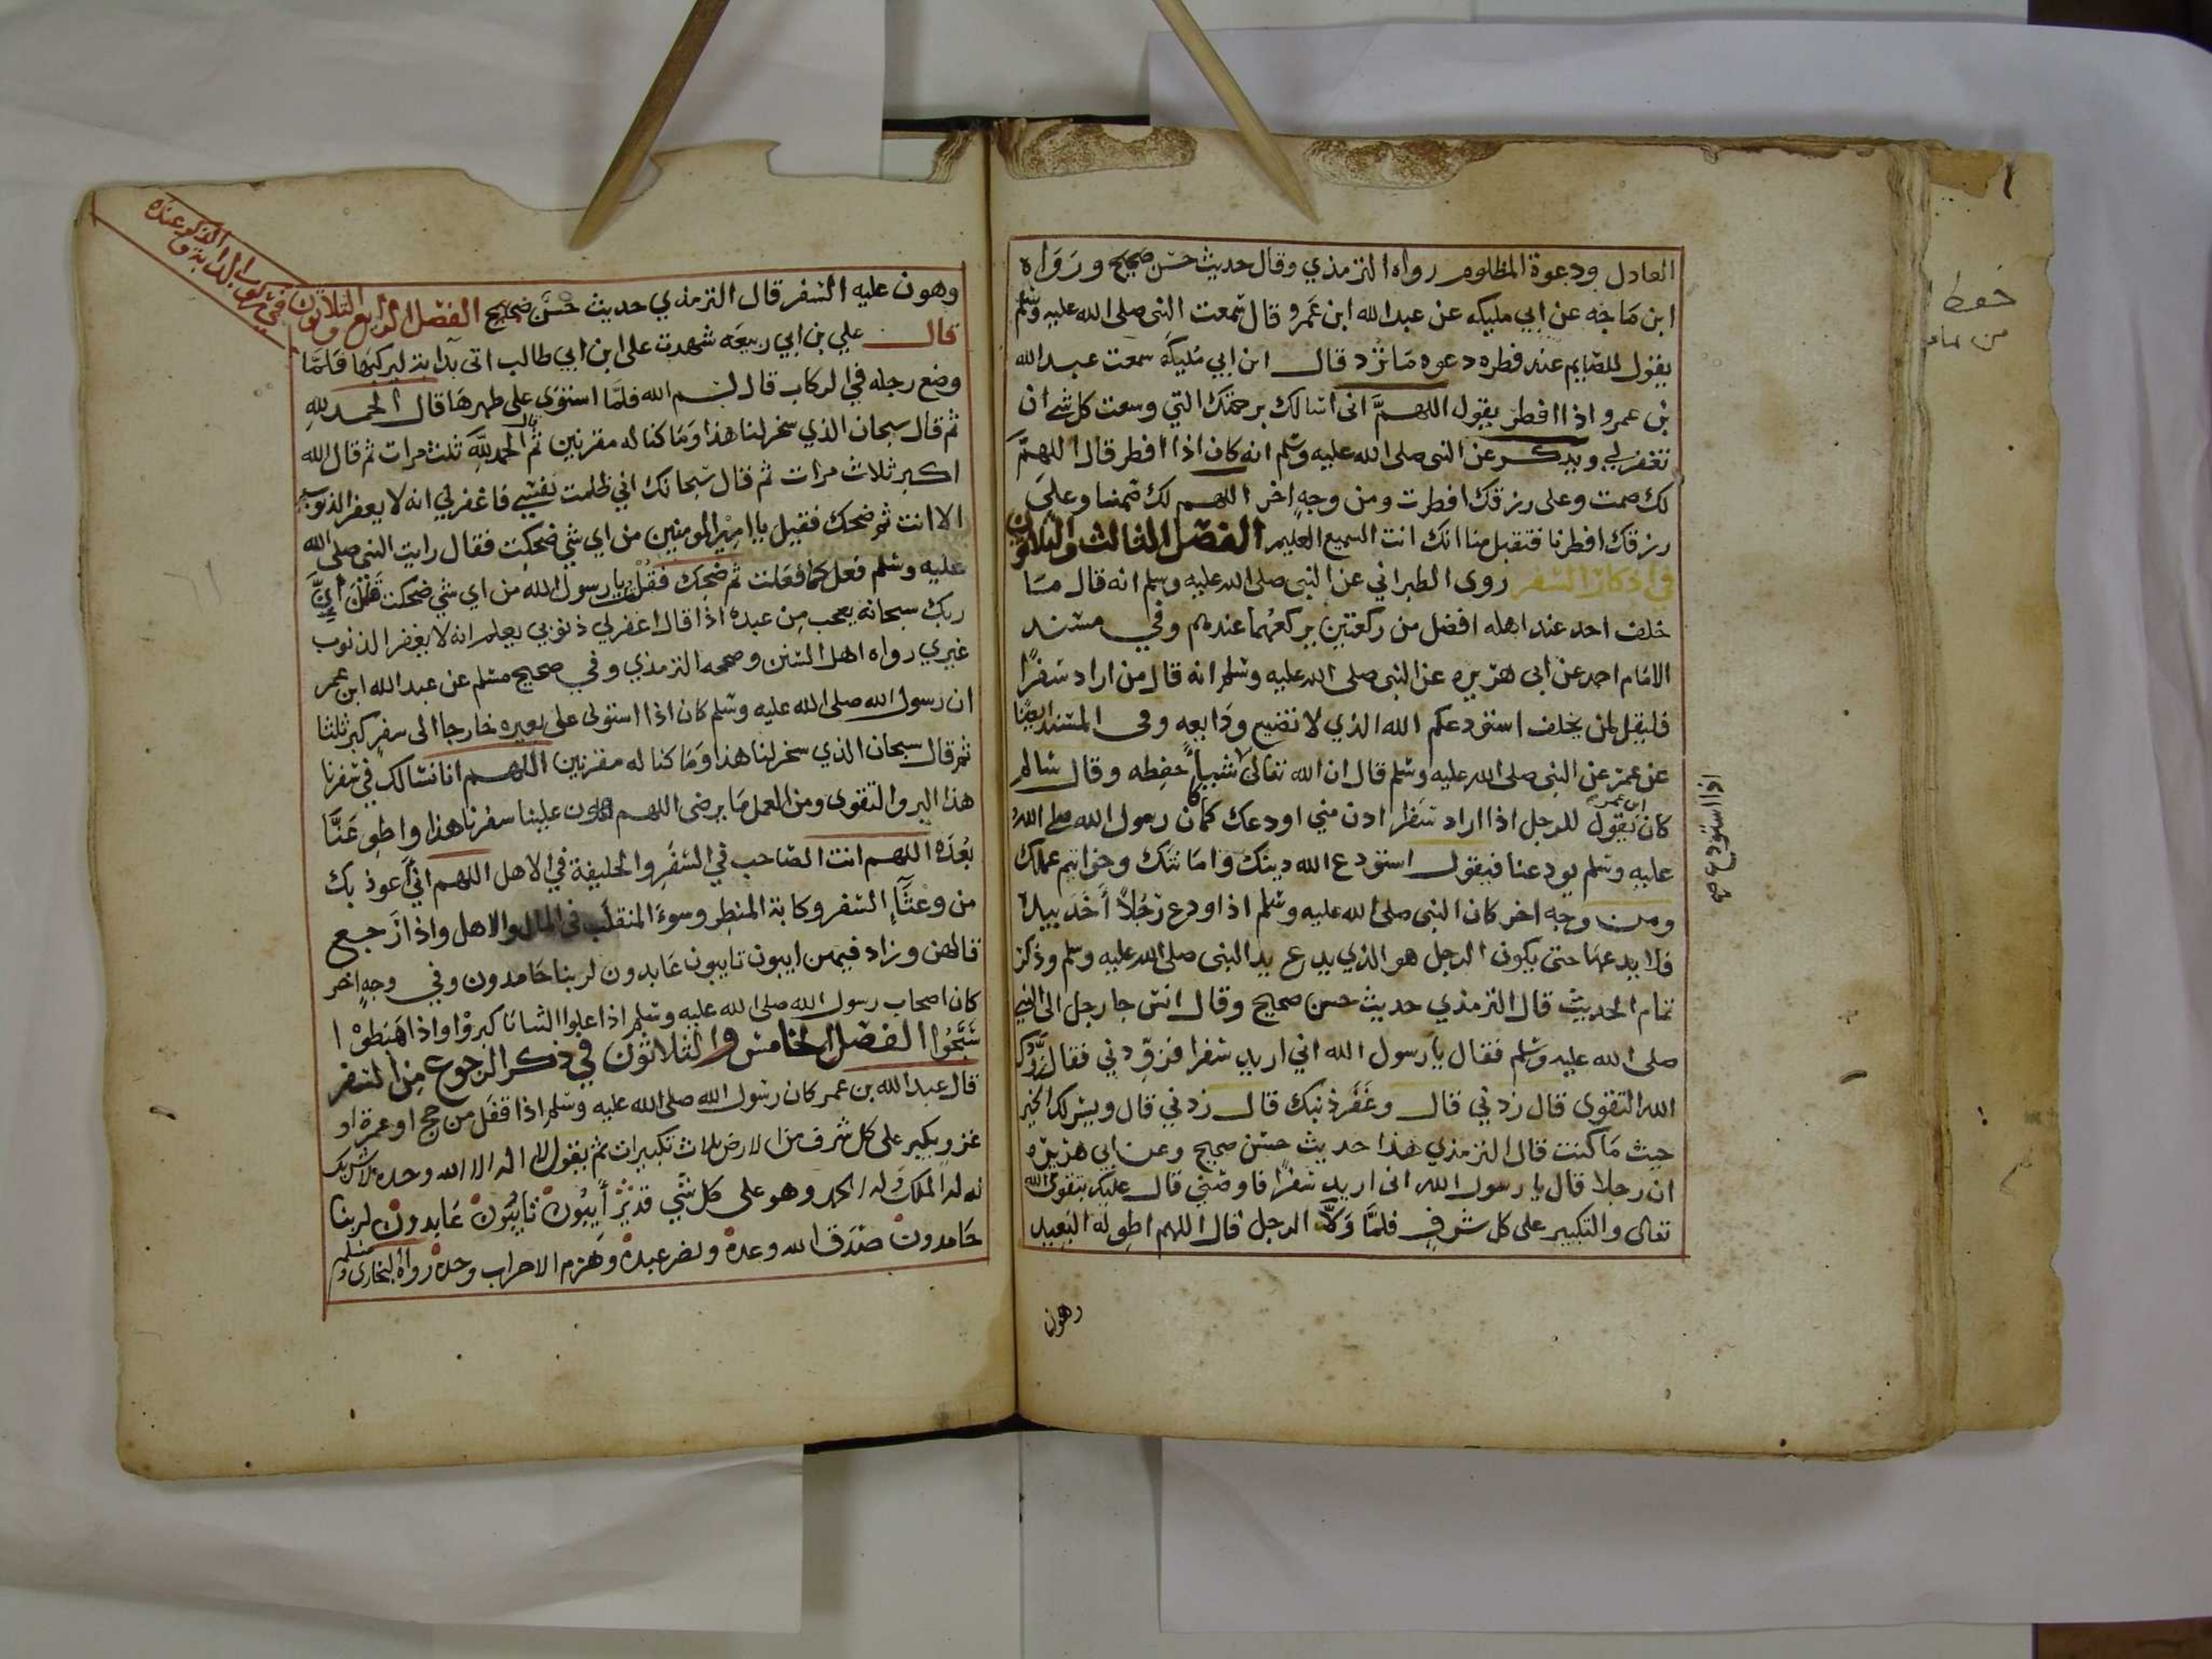 العادل ودعوة المظلوم رواه الترمذي وقال حديث حسن صحيح ورواه
ابن ماجه عن ابي مليكه عن عبد الله ابن عمرو قال سمعت النبى صلى الله عليه وسلم
يقول للصايم عند فطره دعوه ما ترد قال ابن ابي مليكه سمعت عبد الله
بن عمرو اذا افطر يقول اللهم انى اسالك برحمتك التي وسعت كل شى ان
تغفر لي ويذكر عن النبى صلى الله عليه وسلم انه كان اذا افطر قال اللهم
لك صمت وعلى رزقك افطرت ومن وجه اخر اللهم لك صمنا وعلى
رزقك افطرنا فتقبل منا انك انت السميع العليم الفصل الثالث والثلاثون
في اذكار السفر روى الطبراني عن النبى صلى الله عليه وسلم انه قال ما
خلف احد عند اهله افضل من ركعتين يركعهما عندهم وفي مسند
الامام احمد عن ابى هريره عن النبى صلى الله عليه وسلم انه قال من اراد سفرا
فليقل لمن يخلف استودعكم الله الذي لا تضيع ودايعه وفى المسند ايضا
عن عمر عن النبى صلى الله عليه وسلم قال ان الله تعالى شييا حفظه وقال سالم
كان ابن عمر يقول للرجل اذا اراد سفرا ادن مني اودعك كما كان رسول الله صلى الله
عليه وسلم يودعنا فيقول استودع الله دينك وامانتك وخواتيم عملك
ومن وجه اخر كان النبى صلى الله عليه وسلم اذا ودع رجلا أخذ بيده
فلا يدعها حتى يكون الرجل هو الذي يدع يد النبى صلى الله عليه وسلم وذكر
تمام الحديث قال الترمذي حديث حسن صحيح وقال انس جا رجل الى النبي
صلى الله عليه وسلم فقال يا رسول الله اني اريد سفرا فزودني فقال زودك
الله التقوى قال زدني قال وغفر ذنبك قال زدني قال ويسر لك الخير
حيث ما كنت قال الترمذي هذا حديث حسن صحيح وعن ابي هريره
ان رجلا قال يا رسول الله انى اريد سفرا فاوصني قال عليك بتقوى الله
تعالى والتكبير على كل شرف فلما ولا الرجل قال اللهم اطو له البعيد
وهون
اذا استودع
حفظ
من
وهون عليه السفر قال الترمذي حديث حسن صحيح الفصل الرابع والثلاثون في ركوب الدابة والذكر عنده
قال علي بن ابي ربيعه شهدت على ابن ابي طالب اتى بدابة ليركبها فلما
وضع رجله في الركاب قال بسم الله فلما استوى على ظهرها قال الحمد لله
ثم قال سبحان الذي سخر لنا هذا وما كنا له مقرنين ثم قال الحمد لله ثلث مرات ثم قال الله
اكبر ثلاث مرات ثم قال سبحانك اني ظلمت نفسي فاغفر لي انه لا يغفر الذنوب
الا انت ثم ضحك فقيل يا امير المومنين من اي شي ضحكت فقال رايت النبى صلى الله
عليه وسلم فعل كما فعلت ثم ضحك فقلت يا رسول الله من اي شي ضحكت
ربك سبحانه يعجب من عبده اذا قال اغفر لي ذنوبي يعلم انه لا يغفر الذنوب
غيري رواه اهل السنن وصححه الترمذي وفي صحيح مسلم عن عبد الله ابن عمر
ان رسول الله صلى الله عليه وسلم كان اذا استوى على بعيره خارجا الى سفر كبر ثلثا
ثم قال سبحان الذي سخر لنا هذا وما كنا له مقرنين اللهم انا نسالك في سفرنا
هذا البر والتقوى ومن العمل ما يرضى اللهم هون علينا سفرنا هذا واطو عنا
بعده اللهم انت الصاحب في السفر والخليفة في الاهل اللهم اني أعوذ بك
من وعثآء السفر وكابة المنظر وسوء المنقلب في المال والاهل واذا رجع
قالهن وزاد فيهن ايبون تايبون عابدون لربنا حامدون وفي وجه اخر
كان اصحاب رسول الله صلى الله عليه وسلم اذا علوا الثنايا كبروا واذا هبطوا
سبحوا الفصل الخامس والثلاثون في ذكر الرجوع من السفر
قال عبد الله بن عمر كان رسول الله صلى الله عليه وسلم اذا قفل من حج او عمرة او
غزو يكبر على كل شرف من الارض ثلاث تكبيرات ثم يقول لا اله الا الله وحده لا شريك
له له الملك وله الحمد وهو على كل شي قدير أيبون تايبون عابدون لربنا
حامدون صدق الله وعده ونصر عبده وهزم الاحزاب وحده رواه البخارى ومسلم